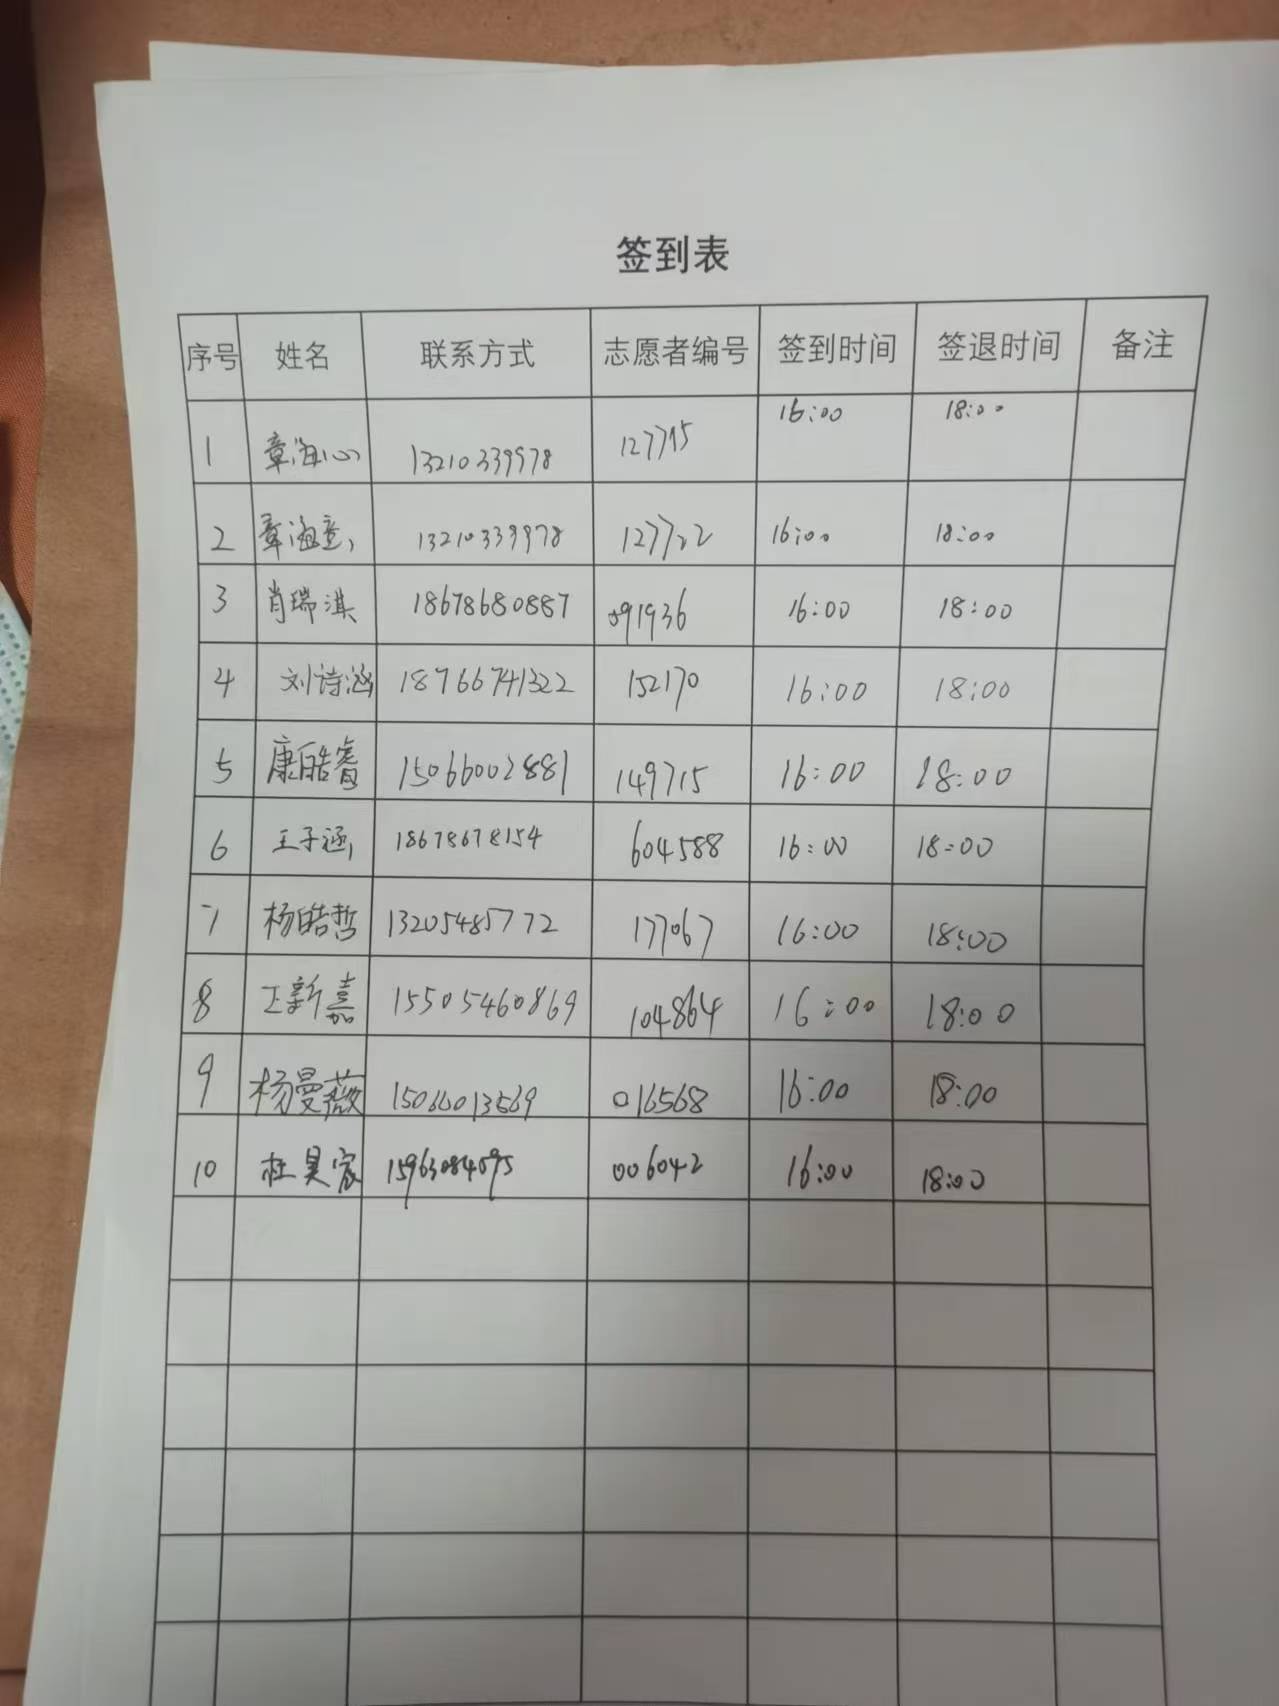 签到表
序号 姓名 联系方式 志愿者编号 签到时间 签退时间 备注
1 章海心 13210339978 127715 16:00 18:00
2 章海 13210339978 127722 16:00 18:00
3 肖瑞淇 18678680887 091936 16:00 18:00
4 刘诗涵 18766741322 152170 16:00 18:00
5 康皓睿 15066002881 149715 16:00 18:00
6 王子涵 18678678154 604588 16:00 18:00
7 杨皓哲 13205485772 177067 16:00 18:00
8 王新嘉 15505460869 104864 16:00 18:00
9 杨曼薇 15066013569 016568 16:00 18:00
10 杜昊宸 006042 16:00 18:00